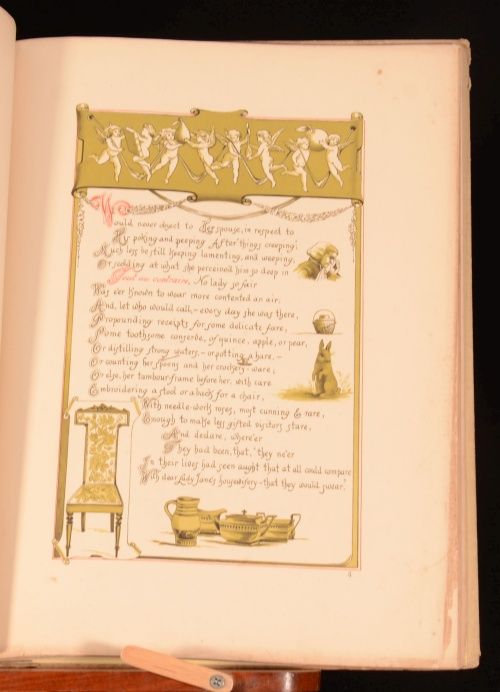 Would never object to Her spouse, in respect to
His poking and peeping After "things creeping";
Much less be still keeping lamenting, and weeping,
Or scolding at what she perceived him so deep in
Tout au contraire, No lady so fair
Was e'er known to wear more contented an air;
And, let who would call,– every day she was there,
Propounding receipts for some delicate fare,
Some toothsome conserve, of quince, apple, or pear,
Or distilling strong waters,– or potting a hare,–
Or counting her spoons and her crockery-ware;
Or else, her tambour-frame before her, with care
Embroidering a stool or a back for a chair,
With needle-work roses, most cunning & rare,
Enough to make less gifted visitors stare,
And declare, where'er
They had been, that, "they ne'er
In their lives had seen aught that at all could compare
With dear Lady Jane's housewifery–that they would swear."
4